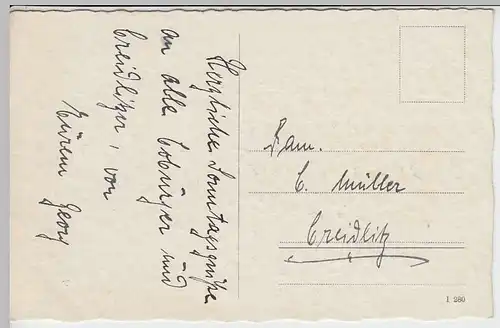 Herzliche Sonntagsgrüße
an alle Coburger und
Creidlitzer, von
Eurem Georg
Fam.
C. Müller
Creidlitz
I 280